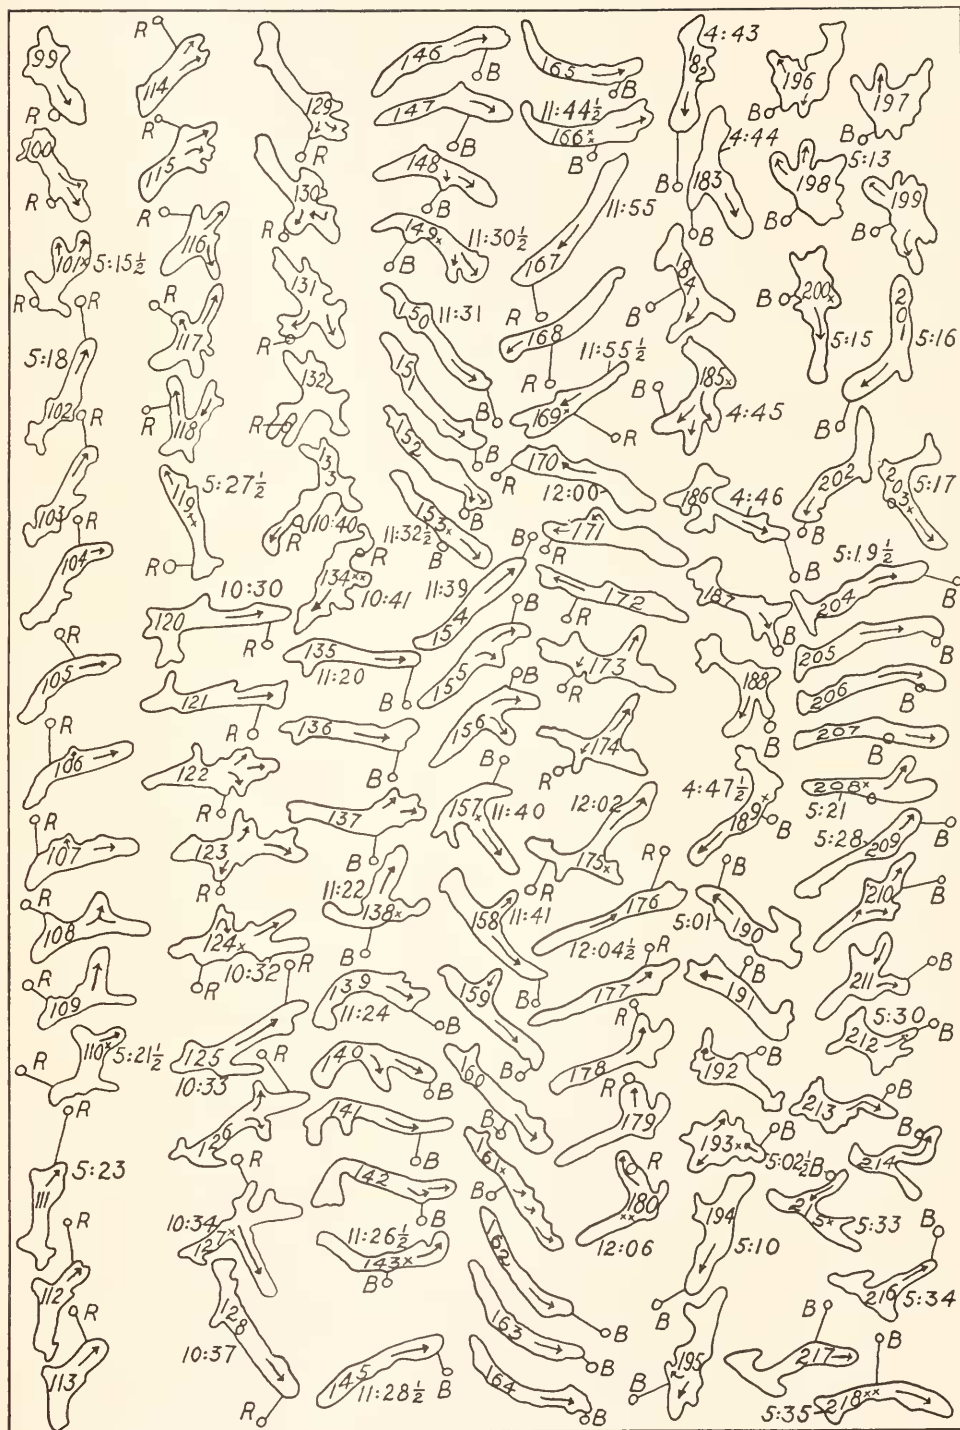 99
R
100
R
101x 5:15½
R
R
5:18
102
R
103
R
104
R
105
R
106
R
107
R
108
R
109
R
110x 5:21½
R
R
111 5:23
R
112
R
113
R
114
R
115
R
116
R
117
R
118
119xx 5:27½
R
10:30
120
R
121
R
122
R
123
R
124x
10:32
R
R
125
10:33
R
126
R
10:34
127x
128
10:37
R
129
R
130
R
131
R
132
R
133
R
10:40
R
134xx
10:41
135
11:20
B
136
B
137
B
11:22
138x
B
139
11:24
B
140
B
141
B
142
B
11:26½
143x
B
145
11:28½
B
146
B
147
B
148
B
149x 11:30½
B
150 11:31
B
151
B
152
B
153x
11:32½
B
B
11:39
154
B
155
B
156
B
157x 11:40
158 11:41
B
159
B
160
B
161x
B
162
B
163
B
164
B
165
B
11:44½
166xx
B
11:55
167
R
168
R
11:55½
169x
R
170
R
12:00
171
R
172
R
173
R
174
R
12:02
175x
R
R
176
12:04½
R
177
R
178
R
179
R
180
xx
12:06
4:43
182
B
4:44
183
B
184
B
185x
B
4:45
186 4:46
B
187
B
188
B
4:47½
189x
B
B
5:01
190
B
191
B
192
B
193xx
5:02½
194
5:10
B
195
B
196
B
197
B
5:13
198
B
199
B
200x
B
5:15
201 5:16
B
202
B
203x 5:17
5:19½
204
B
205
B
206
B
207
B
208x
5:21
5:28
209
B
210
B
211
B
5:30
212
B
213
B
214
B
B
215x 5:33
B
216 5:34
B
217
B
5:35 218xx